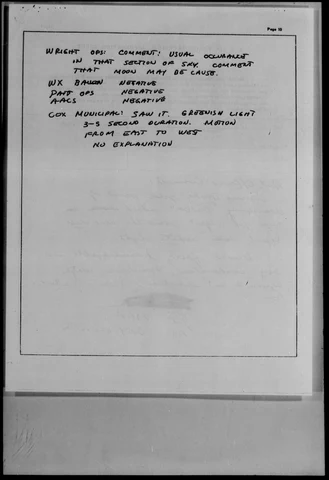 Page 10
WRIGHT OPS: COMMENT: USUAL OCCURANCE
IN THAT SECTION OF SKY. COMMENT
THAT MOON MAY BE CAUSE.
WX BALOON NEGATIVE
PATT OPS NEGATIVE
AACS NEGATIVE
COX MUNICIPAL: SAW IT. GREENISH LIGHT
3-5 SECOND DURATION. MOTION
FROM EAST TO WEST
NO EXPLANATION